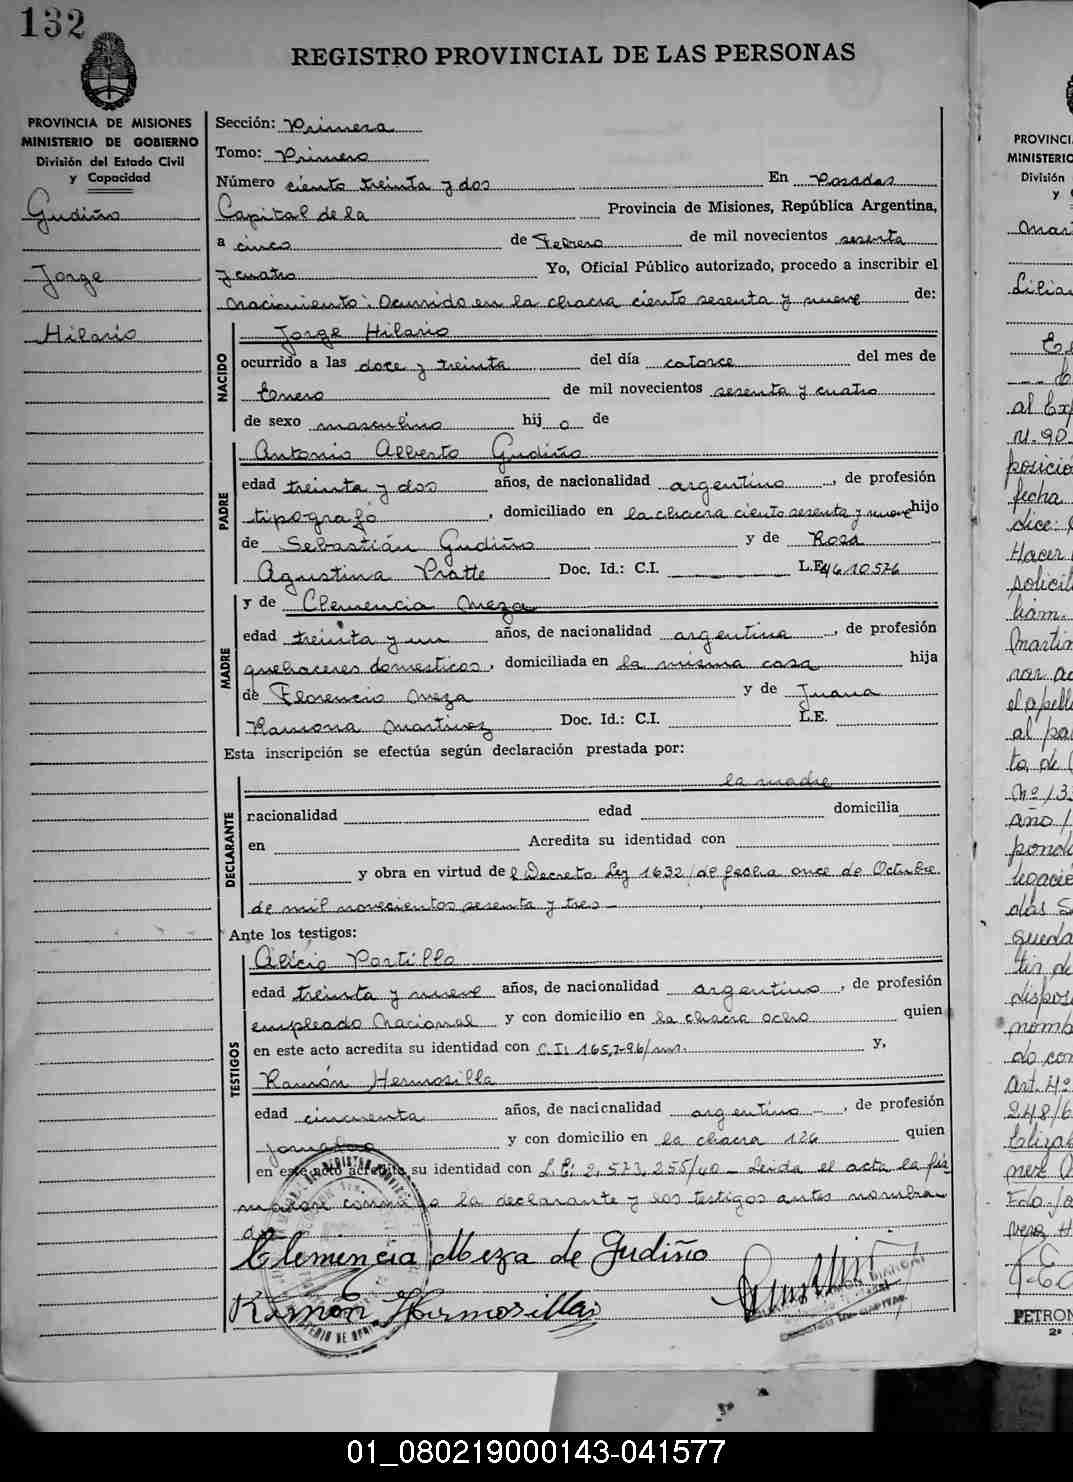 132
REGISTRO PROVINCIAL DE LAS PERSONAS
PROVINCIA DE MISIONES
MINISTERIO DE GOBIERNO
División del Estado Civil
y Capacidad
Gudiño
Jorge
Hilario
Sección: Primera
Tomo: Primero
Número ciento treinta y dos En Posadas
Capital de la Provincia de Misiones, República Argentina,
a cinco de Febrero de mil novecientos sesenta
y cuatro Yo, Oficial Público autorizado, procedo a inscribir el
nacimiento: Ocurrido en la chacra ciento sesenta y nueve de:
NACIDO
Jorge Hilario
ocurrido a las doce y treinta del día catorce del mes de
Enero de mil novecientos sesenta y cuatro
de sexo masculino hij o de
PADRE
Antonio Alberto Gudiño
edad treinta y dos años, de nacionalidad argentino, de profesión
tipografo, domiciliado en la chacra ciento sesenta y nueve hijo
de Sebastián Gudiño y de Rosa
Agustina Pratte Doc. Id.: C.I. L.E.
MADRE
y de Clemencia Meza
edad treinta y un años, de nacionalidad argentina, de profesión
quehaceres domesticos, domiciliada en la misma casa hija
de Florencio Meza y de Juana
Ramona Martinez Doc. Id.: C.I. L.E.
Esta inscripción se efectúa según declaración prestada por:
DECLARANTE
la madre
nacionalidad edad domicilia
en Acredita su identidad con
y obra en virtud de l Decreto Ley 1632/ de fecha once de Octubre
de mil novecientos sesenta y tres -
Ante los testigos:
TESTIGOS
Alicio Portillo
edad treinta y nueve años, de nacionalidad argentino, de profesión
empleado Nacional y con domicilio en la chacra ocho quien
en este acto acredita su identidad con C.I: y,
Ramón Hermosilla
edad cincuenta años, de nacionalidad argentino -, de profesión
y con domicilio en la chacra 126 quien
en este acto acredita su identidad con L.E: 2,573,255/40 - Leida el acta la fir
maron conmigo la declarante y los testigos antes nombra
dos
Clemencia Meza de Gudiño
Ramón Hermosilla
PROVINCI
MINISTERIO
División
y
Lilian
al Exp
N. 90
posició
fecha
dice:
Hacer
solicit
liam
Martin
el apell
al pa
to, de
Nº 133
año 1
PETRON
2º
01_080219000143-041577